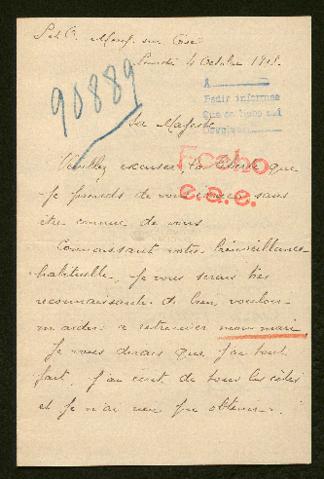 Meuf sur
Lundi 4 Octobre 1915.
90889
A
Pedir informes
Que se hubo
Devolver
Sa Majesté
Fecho
c.a.e.
Veuillez excuser la liberté que
je prends de vous écrire sans
être connue de vous
Connaissant votre bienveillance
habituelle, je vous serais très
reconnaissante de bien vouloir
m'aider a retrouver mon mari
Je vous dirais que j'ai tout
fait, j'ai écrit de tous les côtés
et je n'ai rien pu obtenir.